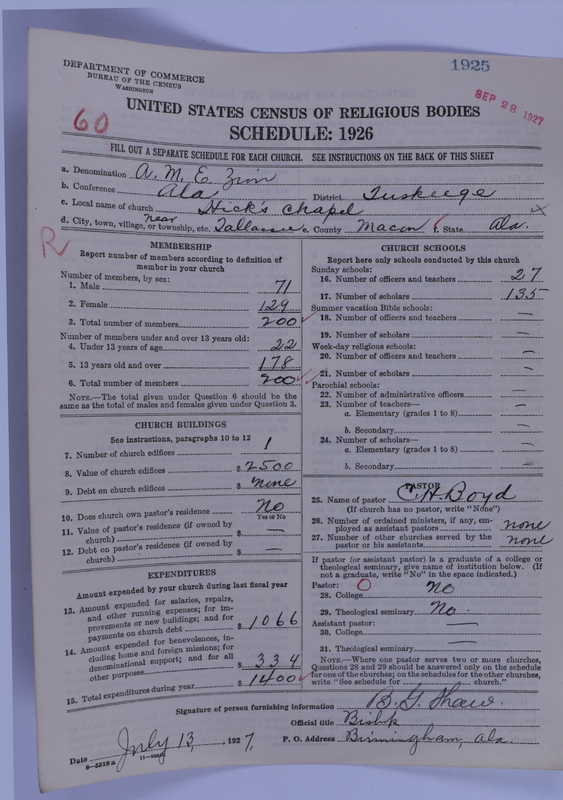 1925
SEP 28 1927
DEPARTMENT OF COMMERCE
BUREAU OF THE CENSUS
WASHINGTON
UNITED STATES CENSUS OF RELIGIOUS BODIES
60
SCHEDULE: 1926
FILL OUT A SEPARATE SCHEDULE FOR EACH CHURCH. SEE INSTRUCTIONS ON THE BACK OF THIS SHEET
a. Denomination A. M. E. Zion
b. Conference Ala District Tuskeege
c. Local name of church Hick's Chapel
d. City, town, village, or township, etc. near Tallassee e. County Macon f. State Ala.
R
MEMBERSHIP
Report number of members according to definition of member in your church
Number of members, by sex:
1. Male 71
2. Female 129
3. Total number of members 200
Number of members under and over 13 years old:
4. Under 13 years of age 22
5. 13 years old and over 178
6. Total number of members 200
NOTE.—The total given under Question 6 should be the
same as the total of males and females given under Question 3.
CHURCH BUILDINGS
See instructions, paragraphs 10 to 12
7. Number of church edifices 1
8. Value of church edifices $ 2500
9. Debt on church edifices $ none
10. Does church own pastor's residence No
Yes or No
11. Value of pastor's residence (if owned by
church) $ —
12. Debt on pastor's residence (if owned by
church) $ —
EXPENDITURES
Amount expended by your church during last fiscal year
13. Amount expended for salaries, repairs,
and other running expenses; for im-
provements or new buildings; and for
payments on church debt $ 1066
14. Amount expended for benevolences, in-
cluding home and foreign missions; for
denominational support; and for all
other purposes $ 334
15. Total expenditures during year $ 1400
CHURCH SCHOOLS
Report here only schools conducted by this church
Sunday schools:
16. Number of officers and teachers 27
17. Number of scholars 135
Summer vacation Bible schools:
18. Number of officers and teachers —
19. Number of scholars —
Week-day religious schools:
20. Number of officers and teachers —
21. Number of scholars —
Parochial schools:
22. Number of administrative officers —
23. Number of teachers—
a. Elementary (grades 1 to 8) —
b. Secondary —
24. Number of scholars—
a. Elementary (grades 1 to 8) —
b. Secondary —
PASTOR
25. Name of pastor C. H. Boyd
(If church has no pastor, write "None")
26. Number of ordained ministers, if any, em-
ployed as assistant pastors none
27. Number of other churches served by the
pastor or his assistants none
If pastor (or assistant pastor) is a graduate of a college or
theological seminary, give name of institution below. (If
not a graduate, write "No" in the space indicated.)
Pastor: O
28. College No
29. Theological seminary No.
Assistant pastor:
30. College —
31. Theological seminary —
NOTE.—Where one pastor serves two or more churches,
Questions 28 and 29 should be answered only on the schedule
for one of the churches; on the schedules for the other churches,
write "See schedule for church."
Signature of person furnishing information B. G. Shaw.
Official title Bishop
Date July 13, 1927. P. O. Address Birmingham, Ala.